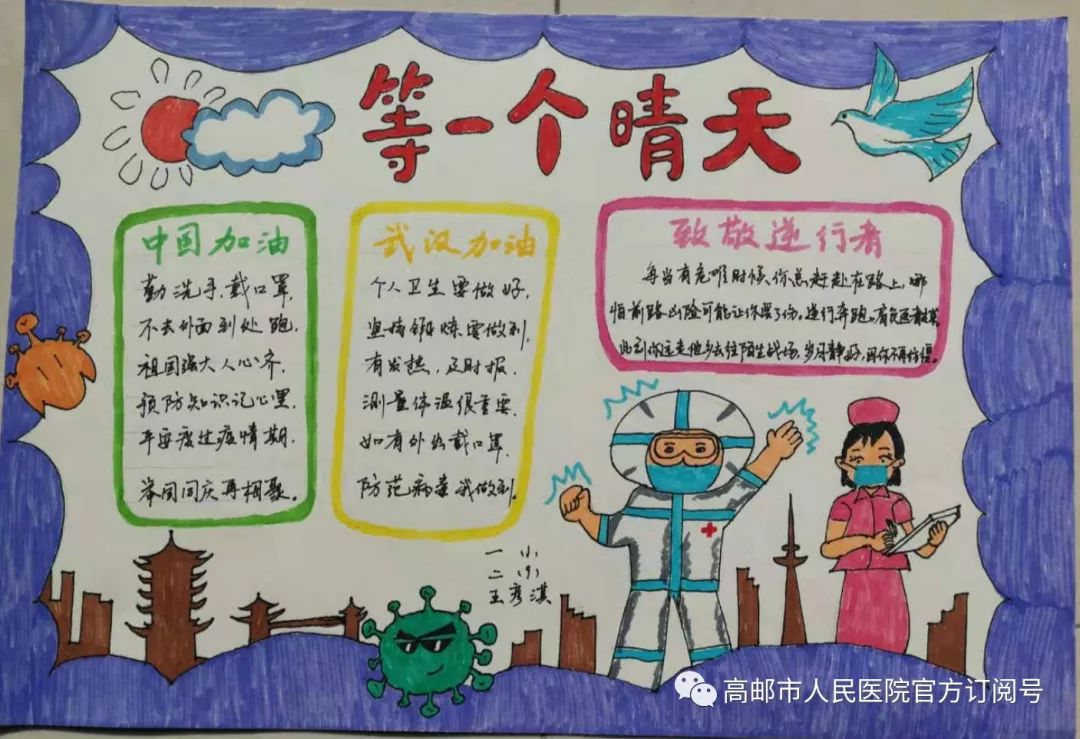 等一个晴天
中国加油
勤洗手,戴口罩,
不去外面到处跑,
祖国强大人心齐,
预防知识记心里,
平安度过疫情期,
举国同庆再相聚。
武汉加油
个人卫生要做好,
坚持锻炼要做到,
有发热,及时报,
测量体温很重要,
如有外出戴口罩,
防范病毒我做到。
致敬逆行者
每当有危难时候,你总赶赴在路上,哪
怕前路凶险可能让你要了伤,逆行奔跑。肩负
此刻你远走他乡去往陌生战场,岁月静好,因你不再彷徨。
一小
二(9)
王彦淇
高邮市人民医院官方订阅号